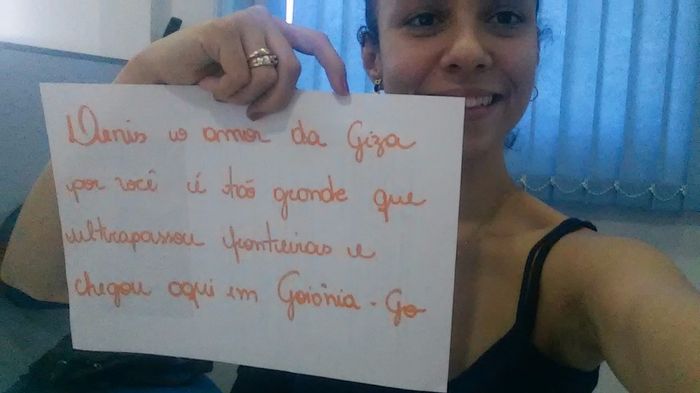 Denis o amor da Giza
por você é tão grande que
ultrapassou fronteiras e
chegou aqui em Goiânia - Go